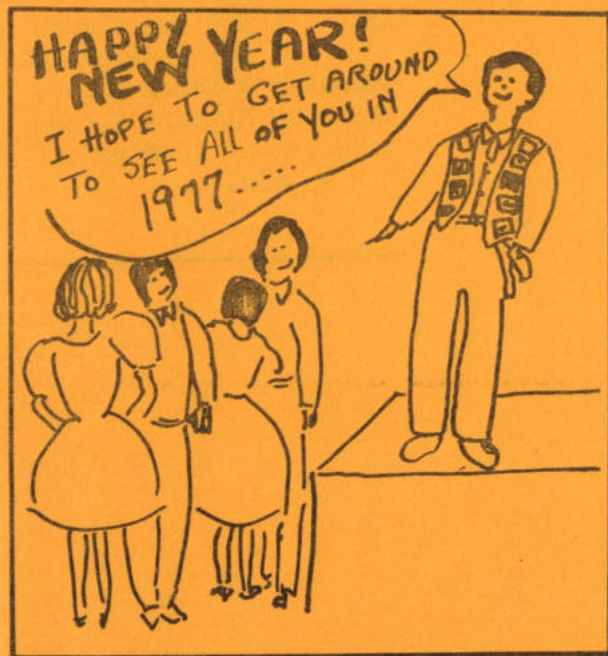 HAPPY
NEW YEAR!
I HOPE TO GET AROUND
TO SEE ALL OF YOU IN
1977.....